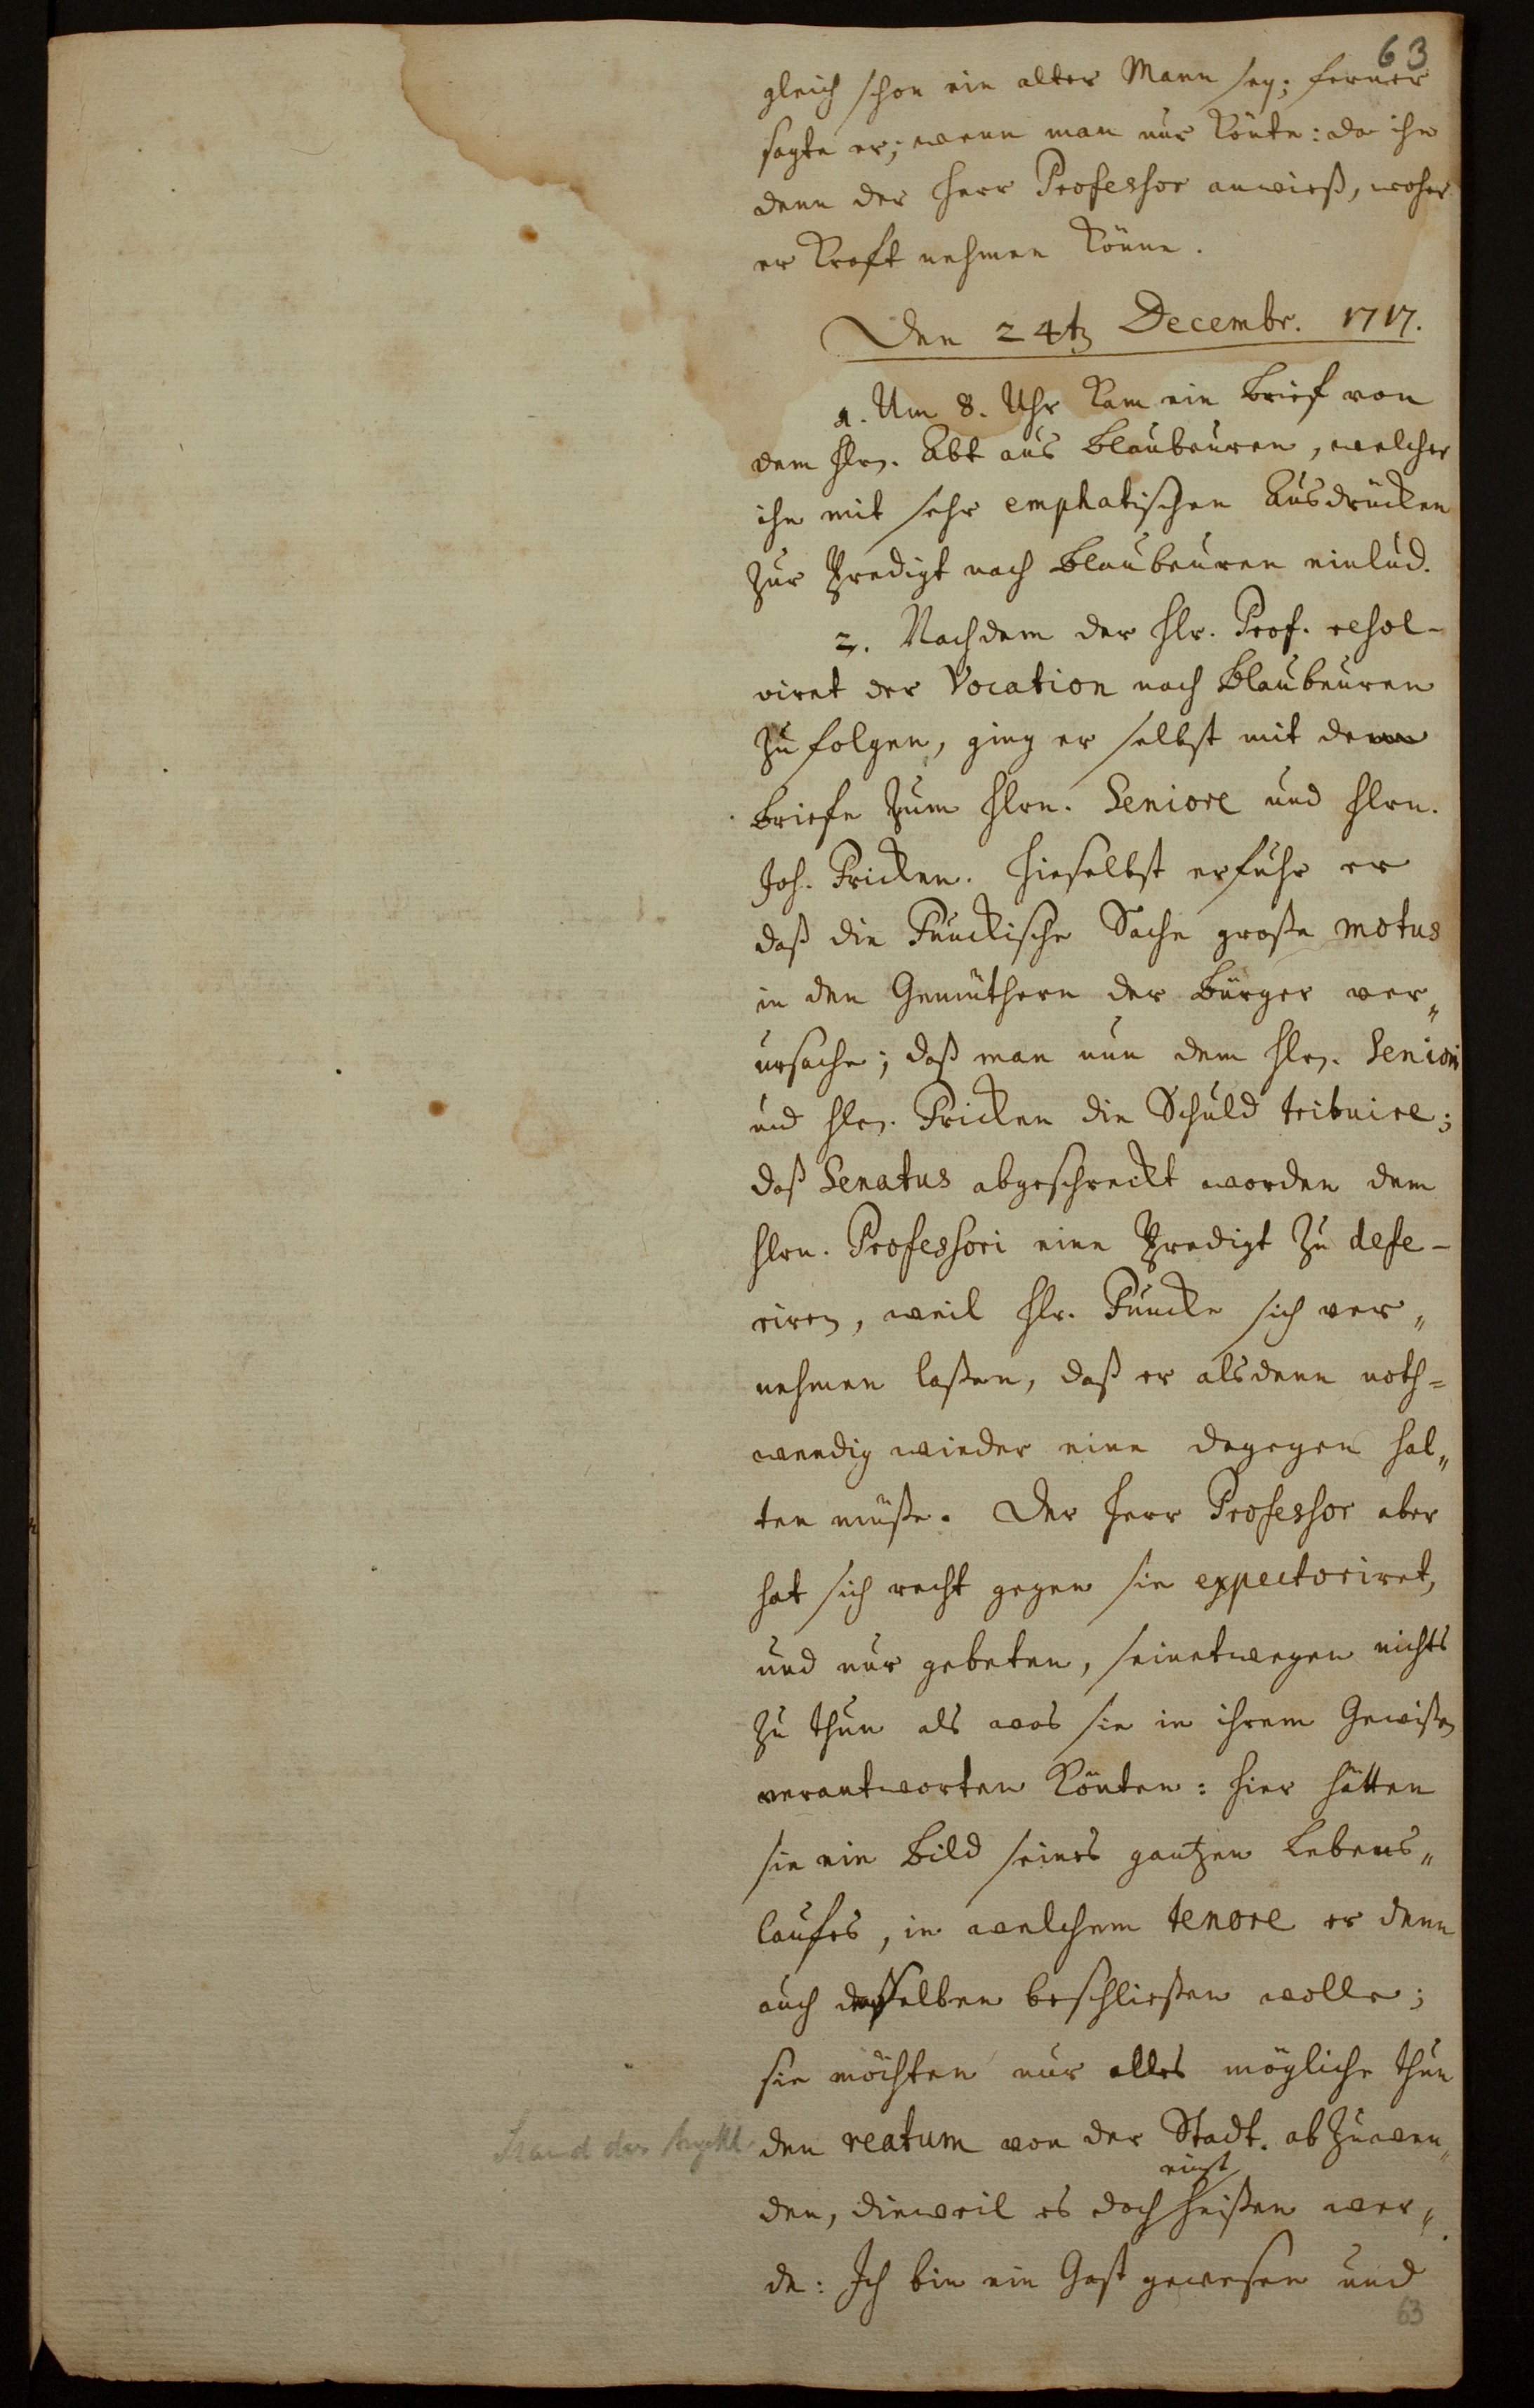 63
gleich schon ein alter Mann sey; ferner
sagte er; wenn man nur könte: da ihn
denn der Herr Professor anwieß, woher
er Kraft nehmen könne.
Den 24ten Decembr. 1717.
1. Um 8. Uhr kam ein Brief von
dem Hrn. Abt aus Blaubeuren, welcher
ihn mit sehr emphatischen Ausdrücken
zur Predigt nach Blaubeuren einlud.
2. Nachdem der Hr. Prof. resol-
viret der Vocation nach Blaubeuren
zu folgen, ging er selbst mit dem
Briefe zum Hrn. Seniore und Hrn.
Joh. Fricken. Hieselbst erfuhr er
daß die Funckische Sache große motus
in den Gemüthern der Bürger ver„
ursache; daß man nun dem Hrn. Seniori
und Hrn. Fricken die Schuld tribuire;
daß Senatus abgeschreckt worden dem
Hrn. Professori eine Predigt zu defe-
riren, weil Hr. Funcke sich ver„
nehmen laßen, daß er alsdenn noth=
wendig wieder eine dagegen hal„
ten müße. Der Herr Professor aber
hat sich recht gegen sie expectoriret,
und nur gebeten, seinetwegen nichts
zu thun als was sie in ihrem Gewißen
verantworten könten: hier hätten
sie ein Bild seines gantzen Lebens„
laufes, in welchem tenore er denn
auch desselben beschließen wolle;
sie möchten nur alles mögliche thun
den reatum von der Stadt. abzuwen„
einst
den, dieweil es doch heißen wer„
de: Ich bin ein Gast gewesen und
63